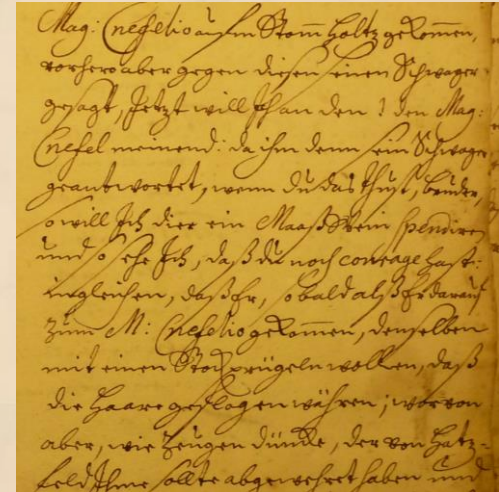 Mag: Cnefelio auf m Stom̄ holtz gekom̄en,
vorhero aber gegen diesen seinen Schwager
gesagt, Jetzt will Ich an den ! den Mag:
Cnefel meinend: da ihm denn sein Schwager
geantwortet, wenn du das thust, bruder,
so will Ich dier ein Maaß Wein spendiren
und so sehe Ich, daß du noch courage hast:
ingleichen, daß Er, so bald alß Er darauf
zum M: Cnefelio gekom̄en, denselben
mit einen Stock prügeln wollen, daß
die Haare geflogen währen; wovon
aber, wie Zeugen düncke, der von Hatz=
feld Ihme sollte abgewehret haben und